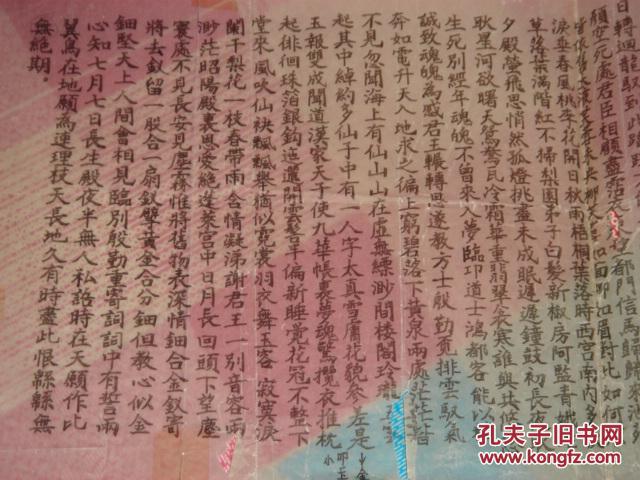 日轉迴龍馭到此躊
顏空死處君臣相顧盡霑衣東望都門信馬歸歸來
皆依舊太液芙蓉未央柳芙蓉如面柳如眉對此如何
淚垂春風桃李花開日秋雨梧桐葉落時西宮南內多
草落葉滿階紅不掃梨園弟子白髮新椒房阿監青娥
夕殿螢飛思悄然孤燈挑盡未成眠遲遲鐘鼓初長夜
耿星河欲曙天鴛鴦瓦冷霜華重翡翠衾寒誰與共悠
生死別經年魂魄不曾來入夢臨邛道士鴻都客能以
誠致魂魄為感君王輾轉思遂教方士殷勤覓排雲馭氣
奔如電升天入地求之徧上窮碧落下黃泉兩處茫茫皆
不見忽聞海上有仙山山在虛無縹渺間樓閣玲瓏五雲
起其中綽約多仙子中有一人字太真雪膚花貌參差是
金
小
叩玉
玉報雙成聞道漢家天子使九華帳裏夢魂驚攬衣推枕
起徘徊珠箔銀鈎迤邐開雲髻半偏新睡覺花冠不整下
堂來風吹仙袂飄飄舉猶似霓裳羽衣舞玉容寂寞淚
闌干梨花一枝春帶雨含情凝涕謝君王一別音容兩
渺茫昭陽殿裏恩愛絕蓬萊宮中日月長回頭下望塵
寰處不見長安見塵霧惟將舊物表深情鈿合金釵寄
將去釵留一股合一扇釵擘黃金合分鈿但教心似金
鈿堅天上人間會相見臨別殷勤重寄詞詞中有誓兩
心知七月七日長生殿夜半無人私語時在天願作比
翼鳥在地願為連理枝天長地久有時盡此恨緜緜無
無絕期。
孔夫子旧书网
www.kongfz.com